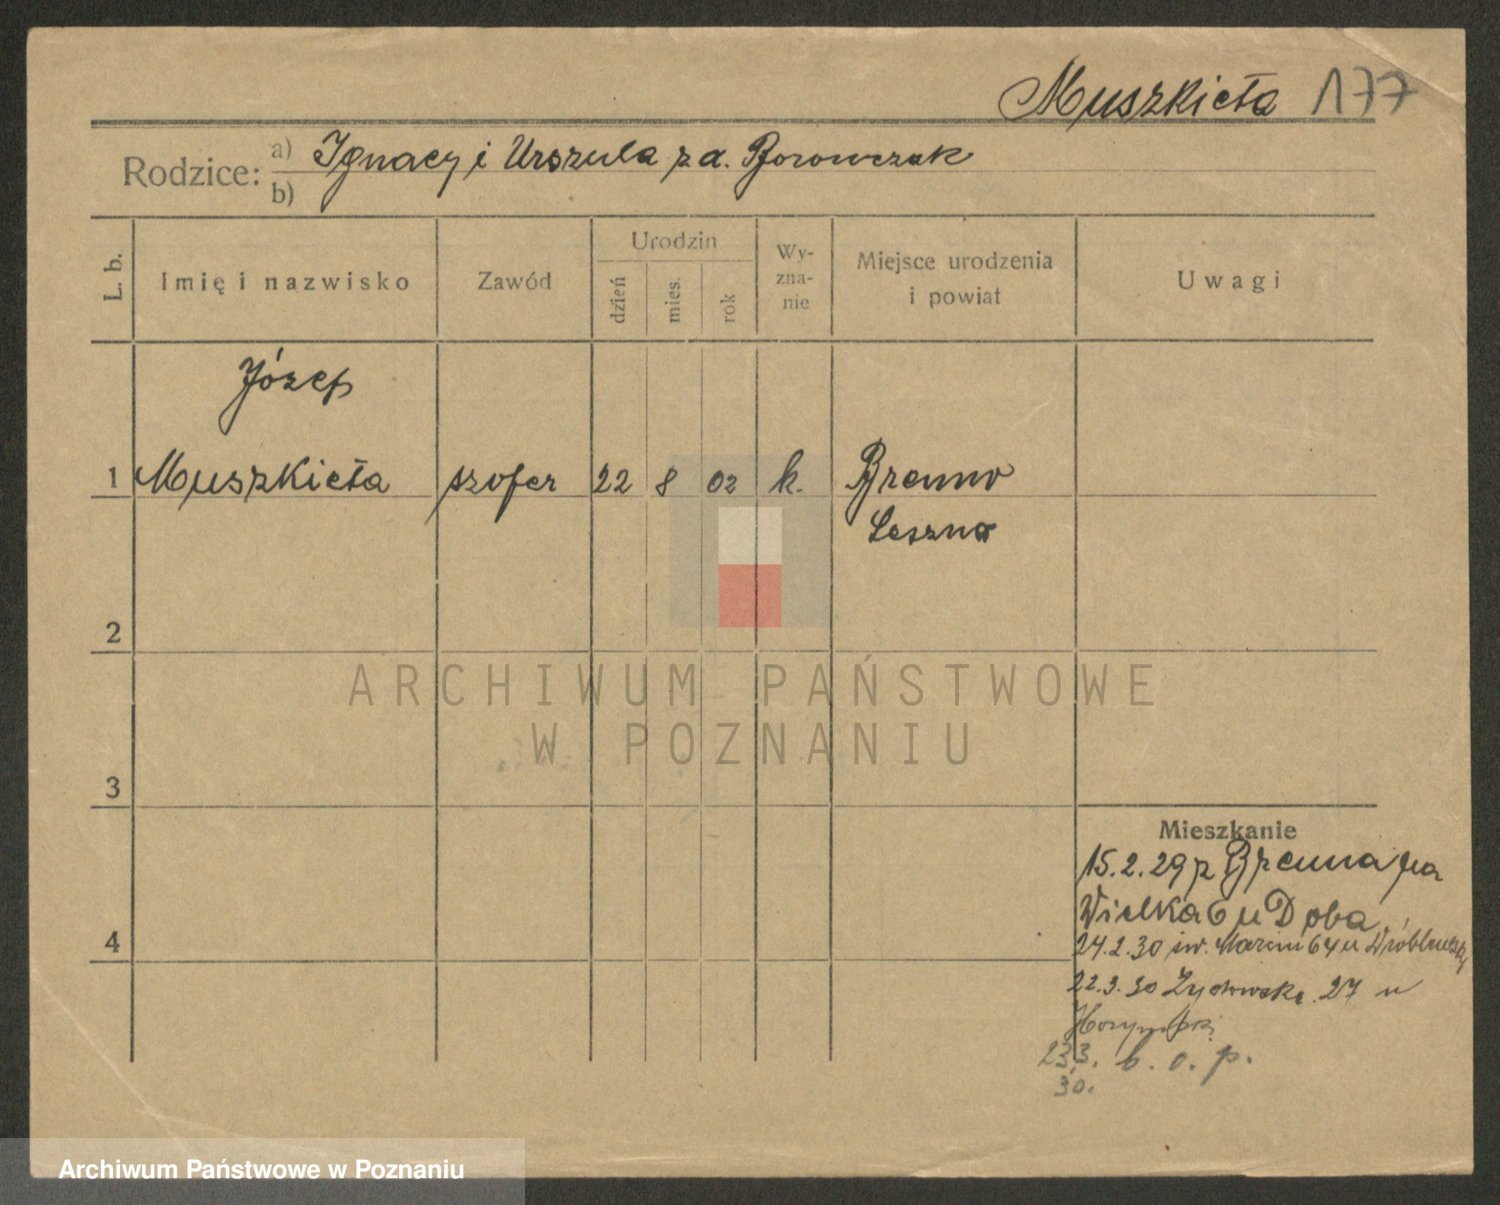 Muszkieta 177
Rodzice: a) Ignacy i Urszula z d. Borowczak
b)
L. b.
Imię i nazwisko
Zawód
Urodzin
dzień
mies.
rok
Wy-
zna-
nie
Miejsce urodzenia
i powiat
Uwagi
Józef
1 Muszkieta szofer 22 8 02 k. Brenno
Leszno
2
ARCHIWUM PAŃSTWOWE
W POZNANIU
3
Mieszkanie
15.2.29 z Brenna na
Wielka 6 u Doba
4
24.2.30 św. Marcin 64 u
22.3.30 Żydowska 27 u
23.3. b. o. p.
30.
Archiwum Państwowe w Poznaniu